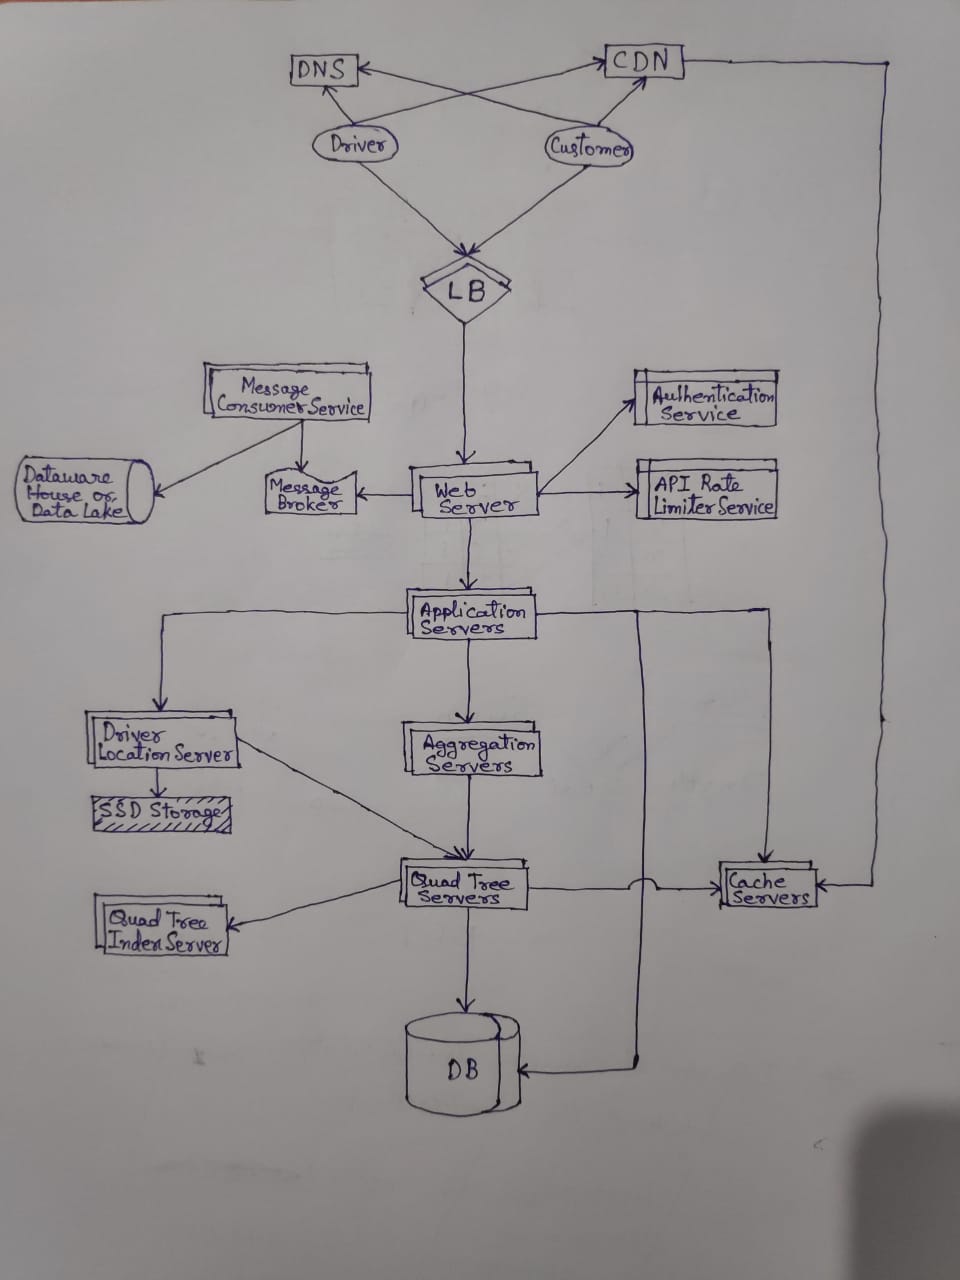 DNS
CDN
Driver
Customer
LB
Message
Consumer Service
Authentication
Service
Dataware
House or
Data Lake
Message
Broker
Web
Server
API Rate
Limiter Service
Application
Servers
Driver
Location Server
Aggregation
Servers
SSD Storage
Quad Tree
Servers
Cache
Servers
Quad Tree
Index Server
DB